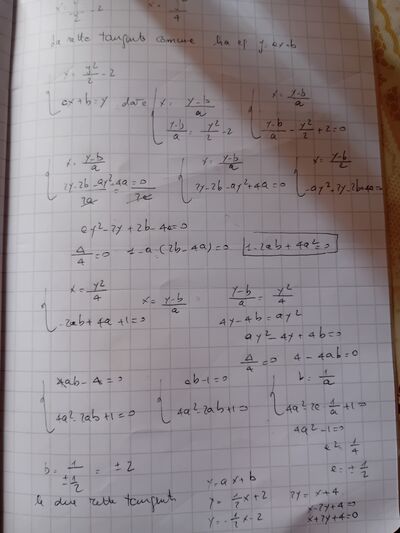 La retta tangente comune ha eq y=ax+b
{ x = y²/2 - 2
{ ax+b=y
{ x = (y-b)/a
{ (y-b)/a = y²/2 - 2
{ x = (y-b)/a
{ (y-b)/a - y²/2 + 2 = 0
{ x = (y-b)/a
{ (2y-2b-ay²+4a)/2a = 0/2a
{ x = (y-b)/a
{ 2y-2b-ay²+4a=0
{ x = (y-b)/a
ay²-2y+2b-4a=0
Δ/4 = 0 1-a·(2b-4a)=0 1-2ab+4a²=0
{ x = y²/4
x = (y-b)/a
(y-b)/a = y²/4
4y-4b=ay²
ay²-4y+4b=0
Δ/4 = 0 4-4ab=0
{ 4ab-4=0
{ 4a²-2ab+1=0
{ ab-1=0
{ 4a²-2ab+1=0
{ b = 1/a
{ 4a²-2a·1/a+1=0
4a²-1=0
a² = 1/4
a = ± 1/2
b = 1/(±1/2) = ±2
le due rette tangenti
y=ax+b
y = 1/2 x+2 2y=x+4
y = -1/2 x-2
x-2y+4=0
x+2y+4=0